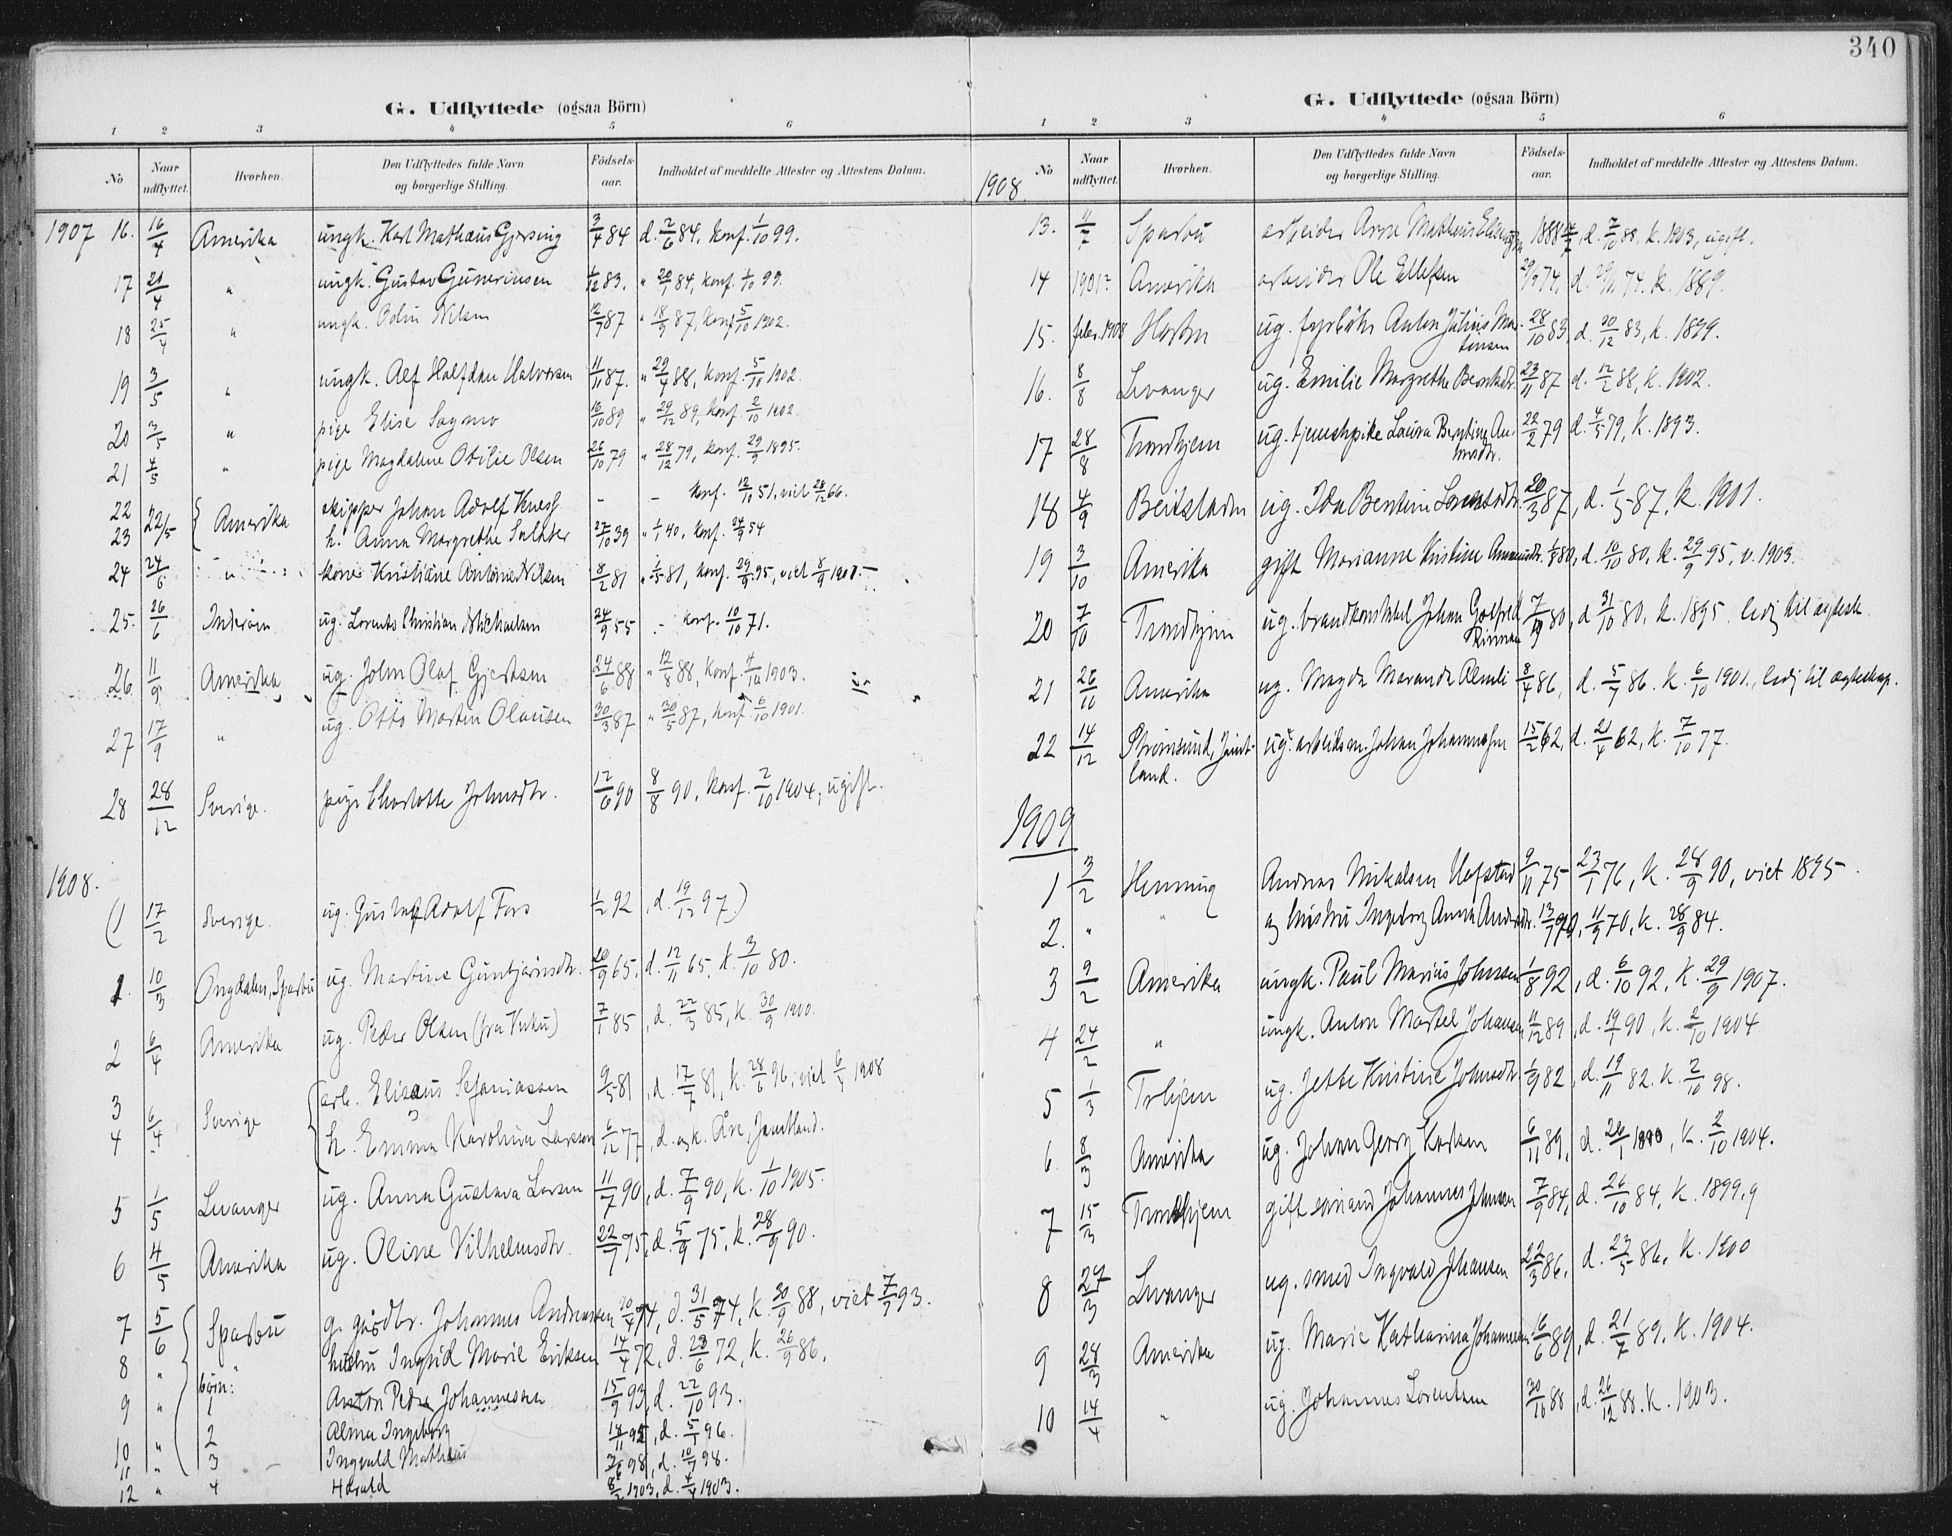 340
G. Udflyttede (ogsaa Börn)
1 2 3 4 5 6
No
Naar udflyttet.
Hvorhen.
Den Udflyttedes fulde Navn og borgerlige Stilling.
Födsels-aar.
Indholdet af meddelte Attester og Attestens Datum.
1907 16. 16/4 Amerika ungk. Karl Mathæus Gjersing 3/4 84 d. 2/6 84, konf. 1/10 99.
17 21/4 " ungk. Gustav Gunerinsen 1/12 83. " 20/1 84, konf. 1/10 99.
18 25/4 " ungk. Odin Nilsen 12/7 87 " 18/9 87, konf. 5/10 1902.
19 3/5 " ungk. Alf Halfdan Halvorsen 11/11 87. " 29/4 88, konf. 5/10 1902.
20 3/5 " pige Elise Sagmo 16/10 89 " 29/12 89, konf. 2/10 1902.
21 4/5 " pige Magdalene Otilie Olsen 26/10 79 " 28/12 79, konf. 29/9 1895.
22 22/5 Amerika skipper Johan Adolf - - konf. 12/10 51, viet 28/12 66.
23 h. Anna Margrethe 27/10 39 " 1/1 40, konf. 24/9 54
24 24/6 " kone Kristiane Antone Nilsen 8/2 81 " 1/5 81, konf. 29/9 95, viet 8/9 1901.
25. 26/6 Inderøen ug. Lorents Christian Michaelsen 24/9 55 - konf. 10/10 71.
26 11/9 Amerika ug. John Olaf Gjertsen 24/6 88 " 12/8 88, konf. 4/10 1903.
27 17/9 " ug. Otto Martin Olausen 30/3 87 " 30/5 87, konf. 6/10 1901.
28 28/12 Sverige. pige Charlotte Johnsdtr. 12/6 90 8/8 90, konf. 2/10 1904, ugift.
1908.
(1 17/2 Sverige. ug. Gustaf Adolf Fors 1/2 92, d. 19/12 97)
1. 10/3 Ongdalen, Sparbu ug. Martine Guntjarinsdtr. 20/9 65, d. 12/11 65, k. 3/10 80.
2 6/4 Amerika ug. Peder Olsen (fra Vuku) 7/1 85, d. 22/3 85, k. 30/9 1900.
3 6/4 Sverige arb. Elisæus Sefaniassen 9/5 81, d. 17/7 81, k. 28/6 96, viet 6/4 1908
4 h. Emma Karolina Larsson 6/12 77, d. og k. Åre, Jæmtland.
5 1/5 Levanger ug. Anna Gustava Larsen 11/7 90, d. 7/9 90, k. 1/10 1905.
6 4/5 Amerika ug. Oline Vilhelmsdtr. 22/7 75, d. 5/9 75, k. 28/9 90.
7 5/6 Sparbu g. gårdbr. Johannes Andreassen 20/4 74, d. 31/5 74, k. 30/9 88, viet 7/7 93.
8 " " hustru Ingrid Marie Eriksen 14/4 72, d. 23/6 72, k. 26/9 86.
børn:
9 " 1 Anton Peder Johannessen 15/9 93, d. 22/10 93.
10 " 2 Alma Ingeborg 14/11 95, d. 5/1 96.
11 " 3 Ingvald Mathæus 98, d. 10/7 98.
12 " 4 Harald 8/2 1903, d. 4/4 1903.
G. Udflyttede (ogsaa Börn)
1 2 3 4 5 6
No
Naar udflyttet.
Hvorhen.
Den Udflyttedes fulde Navn og borgerlige Stilling.
Födsels-aar.
Indholdet af meddelte Attester og Attestens Datum.
1908.
13. 11/7 Sparbu arbeider Arne Mathæus 1888, d. 7/10 88, k. 1903, ugift.
14 1901? Amerika arbeider Ole Ellefsen 29/9 74, d. 29/11 74. k. 1889.
15. febr. 1908 Horten ug. fyrbøter Anton Julius Mortensen 28/10 83, d. 30/12 83, k. 1899.
16. 8/8 Levanger ug. Emilie Margrethe Berntsdtr. 23/11 87 d. 12/2 88, k. 1902.
17 28/8 Trondhjem ug. tjenestpike Laura Berntine 22/2 79 d. 4/5 79, k. 1893.
18 4/9 Beitstaden ug. Ida Bentine Lorentsdtr. 20/3 87, d. 1/5 87, k. 1901.
19 3/10 Amerika gift Marianne Kristine 80, d. 10/10 80, k. 29/9 95, v. 1903.
20 7/10 Trondhjem ug. brandkonstabel Johan Gotfred Rinnan 7/9 80, d. 31/10 80, k. 1895. ledig til ægtesk.
21 26/10 Amerika ug. Magda Marande 8/4 86, d. 5/7 86. k. 6/10 1901., ledig til ægteskap.
22 14/12 Strømsund, Jæmtland. ug. arbeidsm. Johan Johannessen 15/2 62, d. 21/4 62, k. 7/10 77.
1909
1 3/2 Henning Andreas Mikalsen Hofstad 9/11 75 23/1 76, k. 28/9 90, viet 1895.
2. " " og hustru Ingeborg Anna 13/7 70, 11/9 70, k. 28/9 84.
3 9/2 Amerika ungk. Paul Marius Johnsen 1/8 92, d. 6/10 92, k. 29/9 1907.
4 24/2 " ungk. Anton Martel Johansen 11/12 89, d. 19/1 90, k. 2/10 1904
5 1/3 Trhjem ug. Jette Kristine Johnsdtr. 1/9 82, d. 19/11 82. k. 2/10 98.
6. 8/3 Amerika ug. Johan Georg Karlsen 6/11 89, d. 26/1 1890, k. 2/10 1904.
7 15/3 Trondhjem gift sömand Johannes Johnsen 7/9 84, d. 26/10 84, k. 1899, g
8 27/3 Levanger ug. smed Ingvald Johansen 22/3 86, d. 23/5 86, k. 1900
9 28/3 Amerika ug. Marie Katharina Johannessen 16/6 89, d. 21/7 89, k. 1904.
10 14/4 " ug. Johannes Lorentsen 30/10 88, d. 26/12 88. k. 1903.